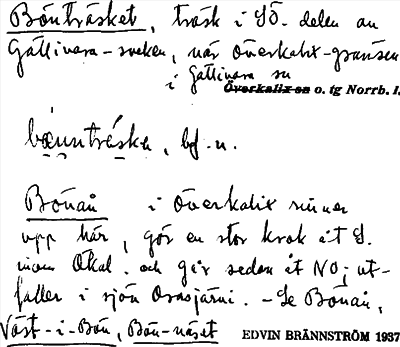 Bönträsket, träsk i SÖ. delen av
Gällivare-socken, när Överkalix-gränsen
i Gällivare sn
Överkalix sn o. tg Norrb. l.
bœnntráske, bf. n.
Bönån i Överkalix rinner
upp här, gör en stor krok åt S.
inom Ökal. och går sedan åt NO; ut-
faller i sjön Orasjärvi. - Se Bönån,
Väst-i-Bön, Bön-näset EDVIN BRÄNNSTRÖM 1937